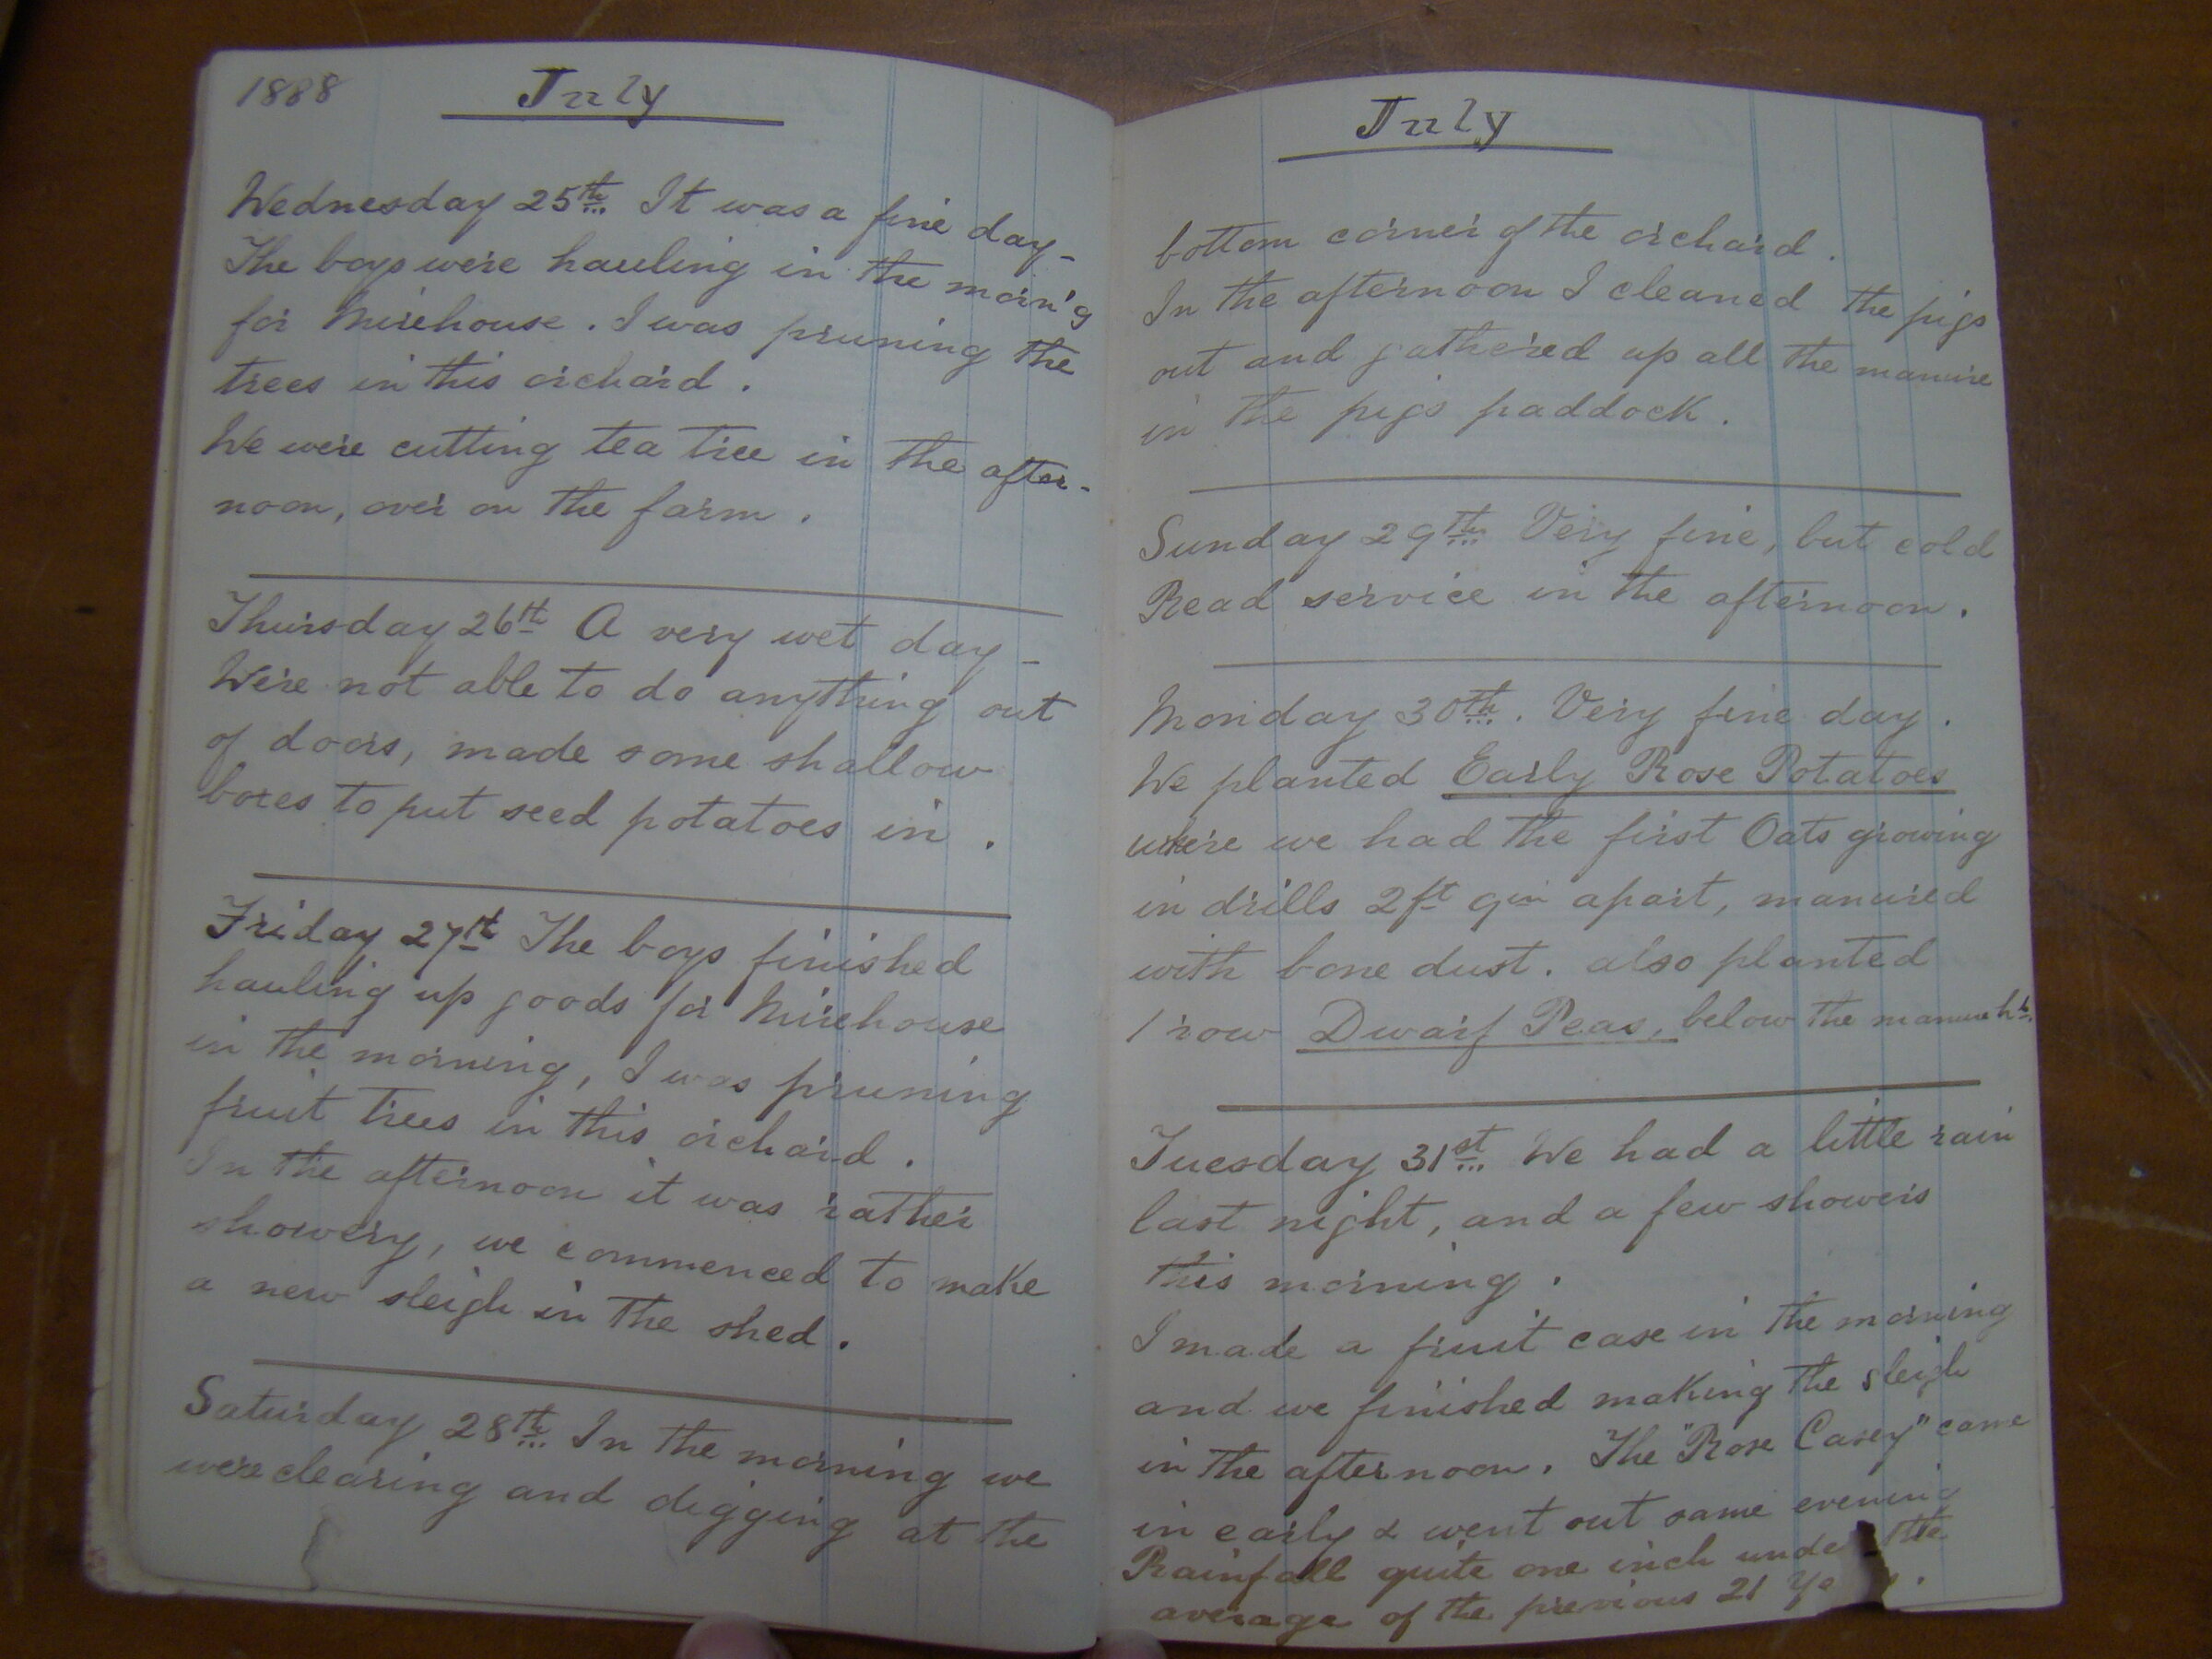 1888 July
Wednesday 25th It was a fine day -
The boys were hauling in the morn'g
for Mirehouse. I was pruning the
trees in this orchard.
We were cutting tea tree in the after-
noon, over on the farm.
Thursday 26th A very wet day -
Were not able to do anything out
of doors, made some shallow
boxes to put seed potatoes in.
Friday 27th The boys finished
hauling up goods for Mirehouse
in the morning, I was pruning
fruit trees in this orchard.
In the afternoon it was rather
showery, we commenced to make
a new sleigh in the shed.
Saturday 28th In the morning we
were clearing and digging at the
July
bottom corner of the orchard.
In the afternoon I cleaned the pigs
out and gathered up all the manure
in the pigs paddock.
Sunday 29th Very fine, but cold
Read service in the afternoon.
Monday 30th. Very fine day.
We planted Early Rose Potatoes
where we had the first Oats growing
in drills 2ft 9in apart, manured
with bone dust. also planted
1 row Dwarf Peas, below the manure
Tuesday 31st We had a little rain
last night, and a few showers
this morning.
I made a fruit case in the morning
and we finished making the sleigh
in the afternoon. The "Rose Casey" came
in early & went out same evening
Rainfall quite one inch under the
average of the previous 21